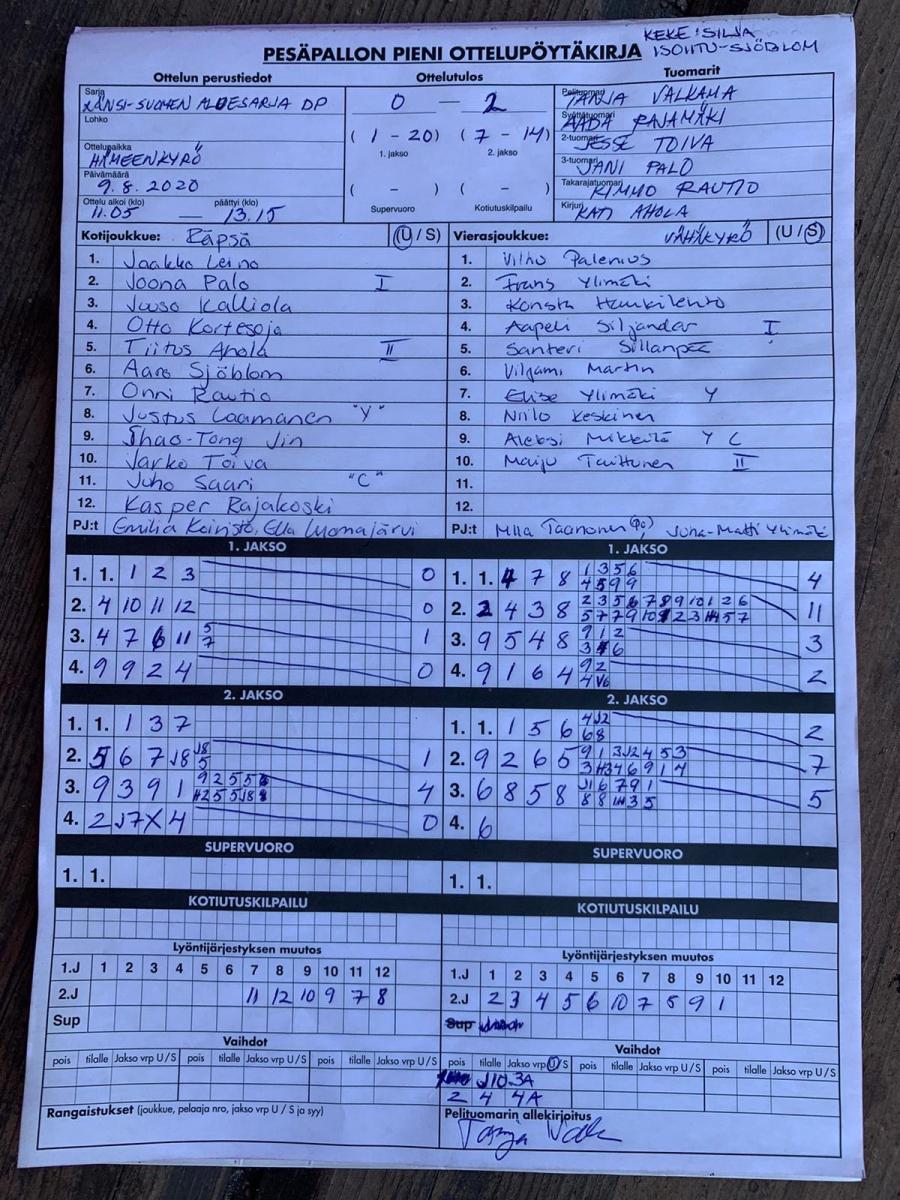 KEKE SILJA
ISOHTU-SJÖBLOM
PESÄPALLON PIENI OTTELUPÖYTÄKIRJA
Ottelun perustiedot Ottelutulos Tuomarit
Sarja LÄNSI-SUOMEN ALUESARJA DP
Lohko
Ottelupaikka HÄMEENKYRÖ
Päivämäärä 9.8.2020
Ottelu alkoi (klo) päättyi (klo)
11.05 — 13.15
0 — 2
(1 - 20) (7 - 14)
1. jakso 2. jakso
( - ) ( - )
Supervuoro Kotiutuskilpailu
Pelituomari TANJA VALKAMA
Syöttötuomari AADA RAJAMÄKI
2-tuomari JESSE TOIVA
3-tuomari JANI PALO
Takarajatuomari KIMMO RAUTIO
Kirjuri KATI AHOLA
Kotijoukkue: Räpsä (U / S)
1. Jaakko Leino
2. Joona Palo I
3. Juuso Kalliola
4. Otto Kortesoja
5. Tiitus Ahola II
6. Aaro Sjöblom
7. Onni Rautio
8. Justus Laamanen "Y"
9. Shao-Tong Jin
10. Jarko Toiva
11. Juho Saari "C"
12. Kasper Rajakoski
PJ:t Emilia Koivisto, Ella Luomajärvi
Vierasjoukkue: VÄHÄKYRÖ (U / S)
1. Vilho Palenius
2. Frans Ylimäki
3. Konsta Haukilehto
4. Aapeli Siljander I
5. Santeri Sillanpää
6. Viljami Martin
7. Elise Ylimäki Y
8. Niilo Keskinen
9. Aleksi Mikkilä Y C
10. Maiju Taittonen II
11.
12.
PJ:t Milla Taanonen (po), Juha-Matti Ylimäki
1. JAKSO
1. 1. 1 2 3 0
2. 4 10 11 12 0
3. 4 7 6 11 5 7 1
4. 9 9 2 4 0
2. JAKSO
1. 1. 1 3 7
2. 5 6 7 J8 J8 5 1
3. 9 3 9 1 4
4. 2 J7 X 4 0
SUPERVUORO
1. 1.
KOTIUTUSKILPAILU
1. JAKSO
1. 1. 4 7 8 1 3 5 6 4 5 9 9 4
2. 2 4 3 8 11
3. 9 5 4 8 9 1 2 3 6 3
4. 9 1 6 4 9 2 4 V6 2
2. JAKSO
1. 1. 1 5 6 4 J2 6 8 2
2. 9 2 6 5 7
3. 6 8 5 8 5
4. 6
SUPERVUORO
1. 1.
KOTIUTUSKILPAILU
Lyöntijärjestyksen muutos
1.J 1 2 3 4 5 6 7 8 9 10 11 12
2.J 11 12 10 9 7 8
Sup
Vaihdot
pois tilalle Jakso vrp U / S pois tilalle Jakso vrp U / S pois tilalle Jakso vrp U / S
Rangaistukset (joukkue, pelaaja nro, jakso vrp U / S ja syy)
Lyöntijärjestyksen muutos
1.J 1 2 3 4 5 6 7 8 9 10 11 12
2.J 2 3 4 5 6 10 7 8 9 1
Sup
Vaihdot
pois tilalle Jakso vrp U / S pois tilalle Jakso vrp U / S pois tilalle Jakso vrp U / S
J10 3A
2 4 4A
Pelituomarin allekirjoitus